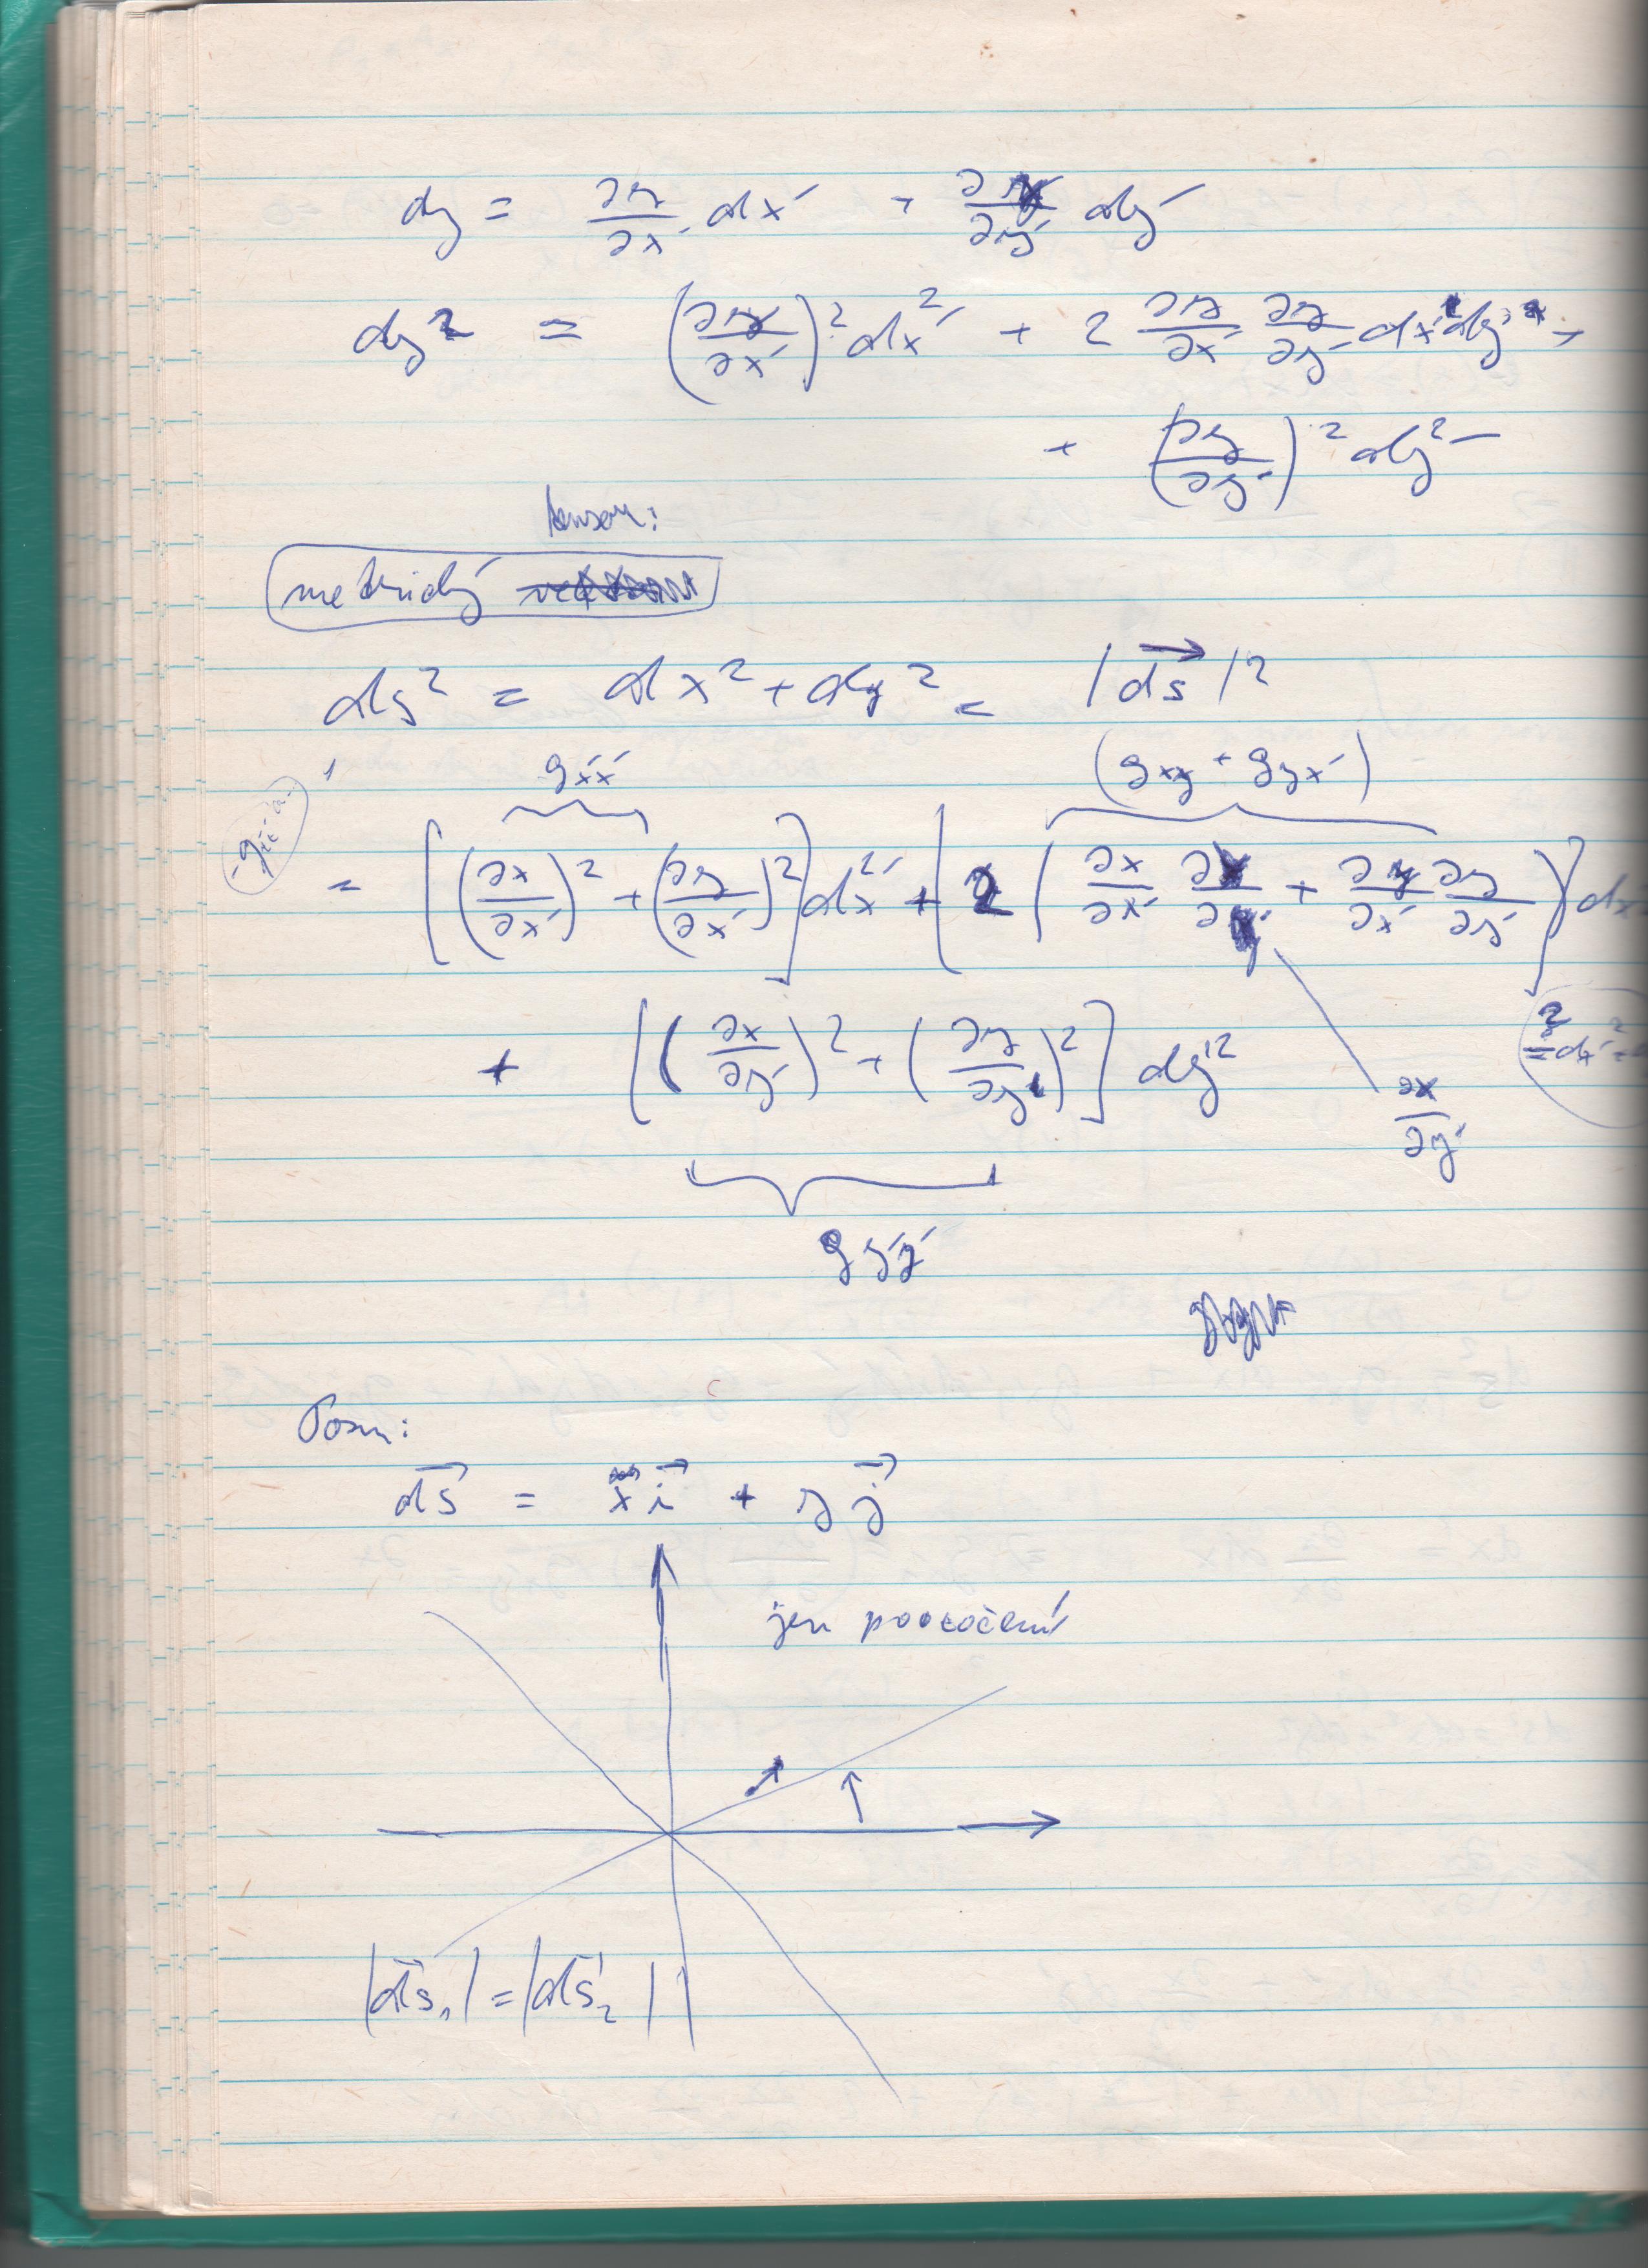 dy = ∂y/∂x´ dx´ + ∂y/∂y´ dy´
dy² = (∂y/∂x´)² dx´² + 2 ∂y/∂x´ ∂y/∂y´ dx´dy´ +
+ (∂y/∂y´)² dy´²
tensor:
metrický
ds² = dx² + dy² = |ds|²
gx´x´ (gxy + gyx´)
= [(∂x/∂x´)² + (∂y/∂x´)²] dx´² + [2 (∂x/∂x´ ∂x/∂y´ + ∂y/∂x´ ∂y/∂y´)] dx
+ [(∂x/∂y´)² + (∂y/∂y´)²] dy´²
∂x/∂y´
gy´y´
Pozn:
ds = x i + y j
jen pootočení
|ds₁| = |ds₂|